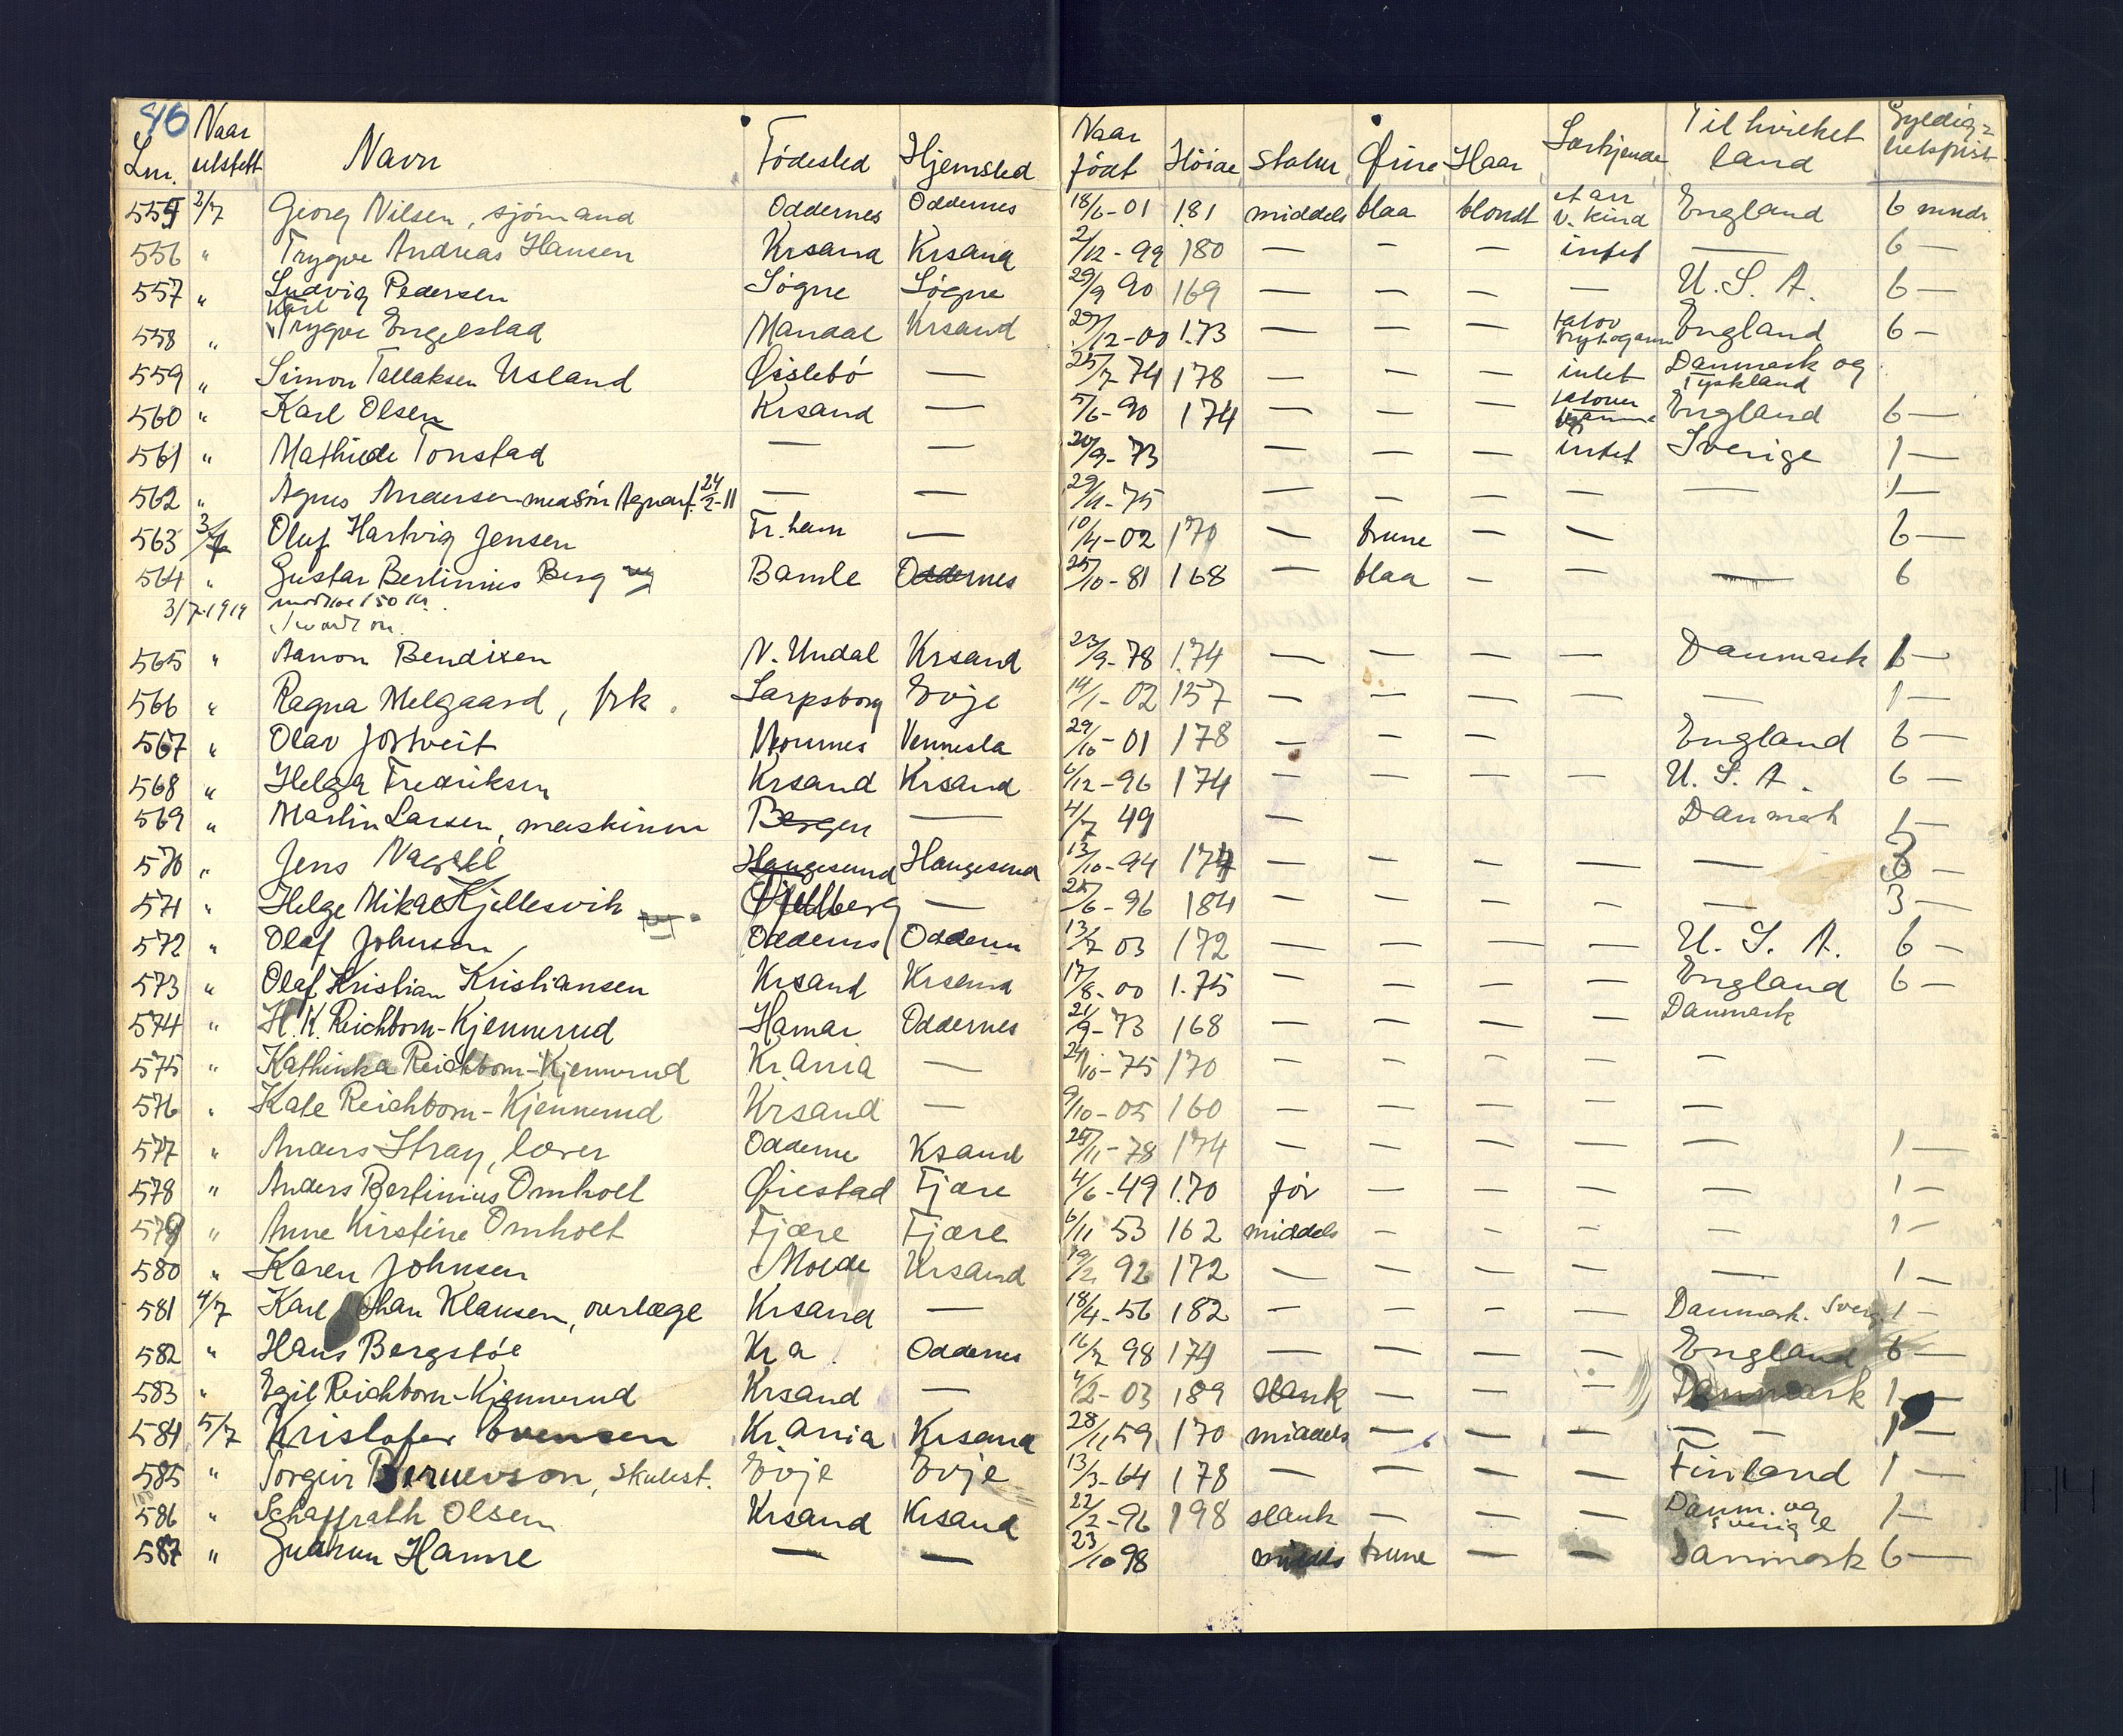 Naar Naar Gyldig-
Lnr. utstett Navn Fødested Hjemsted født Höide Statur Øine Haar Særkjende Til hvilket land hetsfrist
555 2/7 Georg Nilsen, sjömand Oddernes Oddernes 18/6-01 181 middels blaa blondt et arr v. kind England 6 mndr
556 " Trygve Andreas Hansen Krsand Krsand 2/12-99 180 — — — intet — 6 —
557 " Ludvig Pedersen Søgne Søgne 29/9 90 169 — — — — U. S. A. 6 —
558 " Karl Trygve Engelstad Mandal Krsand 12-00 1.73 — — — England 6 —
559 " Simon Tallaksen Usland Øislebö — 25/7-74 178 — — — intet Danmark og Tyskland
560 " Karl Olsen Krsand — 5/6-90 174 — — — England 6 —
561 " Mathilde Tonstad — — 20/9-73 — — — intet Sverige 1 —
562 " Agnes Andersen med sön Agnar f. 24/2-11 — — 29/11-75 — — — — — 1 —
563 3/7 Oluf Hartvig Jensen Tr.hem — 10/4-02 170 — brune — — 6 —
564 " Gustav Bertinius Berg Bamle Oddernes 25/10-81 168 — blaa — — — 6
3/7-1919 150 kr.
565 " Aanon Bendixen N. Undal Krsand 23/9-78 1.74 — — — — Danmark 1 —
566 " Ragna Melgaard, frk. Sarpsborg Evje 14/1-02 157 — — — — — 1 —
567 " Olav Jortveit Hornnes Vennesla 29/10-01 178 — — — England 6 —
568 " Helga Fredriksen Krsand Krsand 6/12-96 174 — — — — U. S. A. 6 —
569 " Martin Larsen, maskinm Bergen — 4/7 49 — Danmark 1 —
570 " Jens Nagell Haugesund Haugesund 13/10-94 174 — — — — — 3 —
571 " Helge Mikal Kjellesvik Fjellberg — 25/6-96 184 — — — — — 3 —
572 " Olaf Johnsen Oddernes Oddern 13/7 03 172 — — — — U. S. A. 6 —
573 " Olaf Kristian Kristiansen Krsand Krsand 17/8-00 1.75 — — — — England 6 —
574 " H. K. Reichborn-Kjennerud Hamar Oddernes 21/9-73 168 — — — — Danmark
575 " Kathinka Reichborn-Kjennerud Kr.ania — 24/10-75 170 — — — — —
576 " Kate Reichborn-Kjennerud Krsand — 9/10-05 160 — — — — —
577 " Anders Stray, lærer Odderne Ksand 25/11-78 174 — — — — — 1 —
578 " Anders Bertinius Omholt Øiestad Fjære 4/6-49 1.70 før — — — — 1 —
579 " Anne Kirstine Omholt Fjære Fjære 6/11 53 162 middels — — — — 1 —
580 " Karen Johnsen Molde Krsand 19/2 92 172 — — — — — 1 —
581 4/7 Karl Johan Klausen, overlæge Krsand — 18/4-56 182 — — — — Danmark. Sverig. 1 —
582 " Hans Bergstøe Kr.a. Oddernes 16/7 98 174 — — — — England 6 —
583 " Egil Reichborn-Kjennerud Krsand — 4/2-03 189 slank — — — Danmark 1 —
584 5/7 Kristofer Evensen Kr.ania Krsand 28/11 59 170 middels — — — — — 1 —
585 " Torgeir Bernevson, skulest. Evje Evje 13/3-64 178 — — — — Finland 1 —
586 " Schaffrath Olsen Krsand Krsand 22/2-96 198 slank — — — Danm. og Sverige 1 —
587 " Gudrun Hamre — — 23/10 98 middels brune — — Danmark 6 —